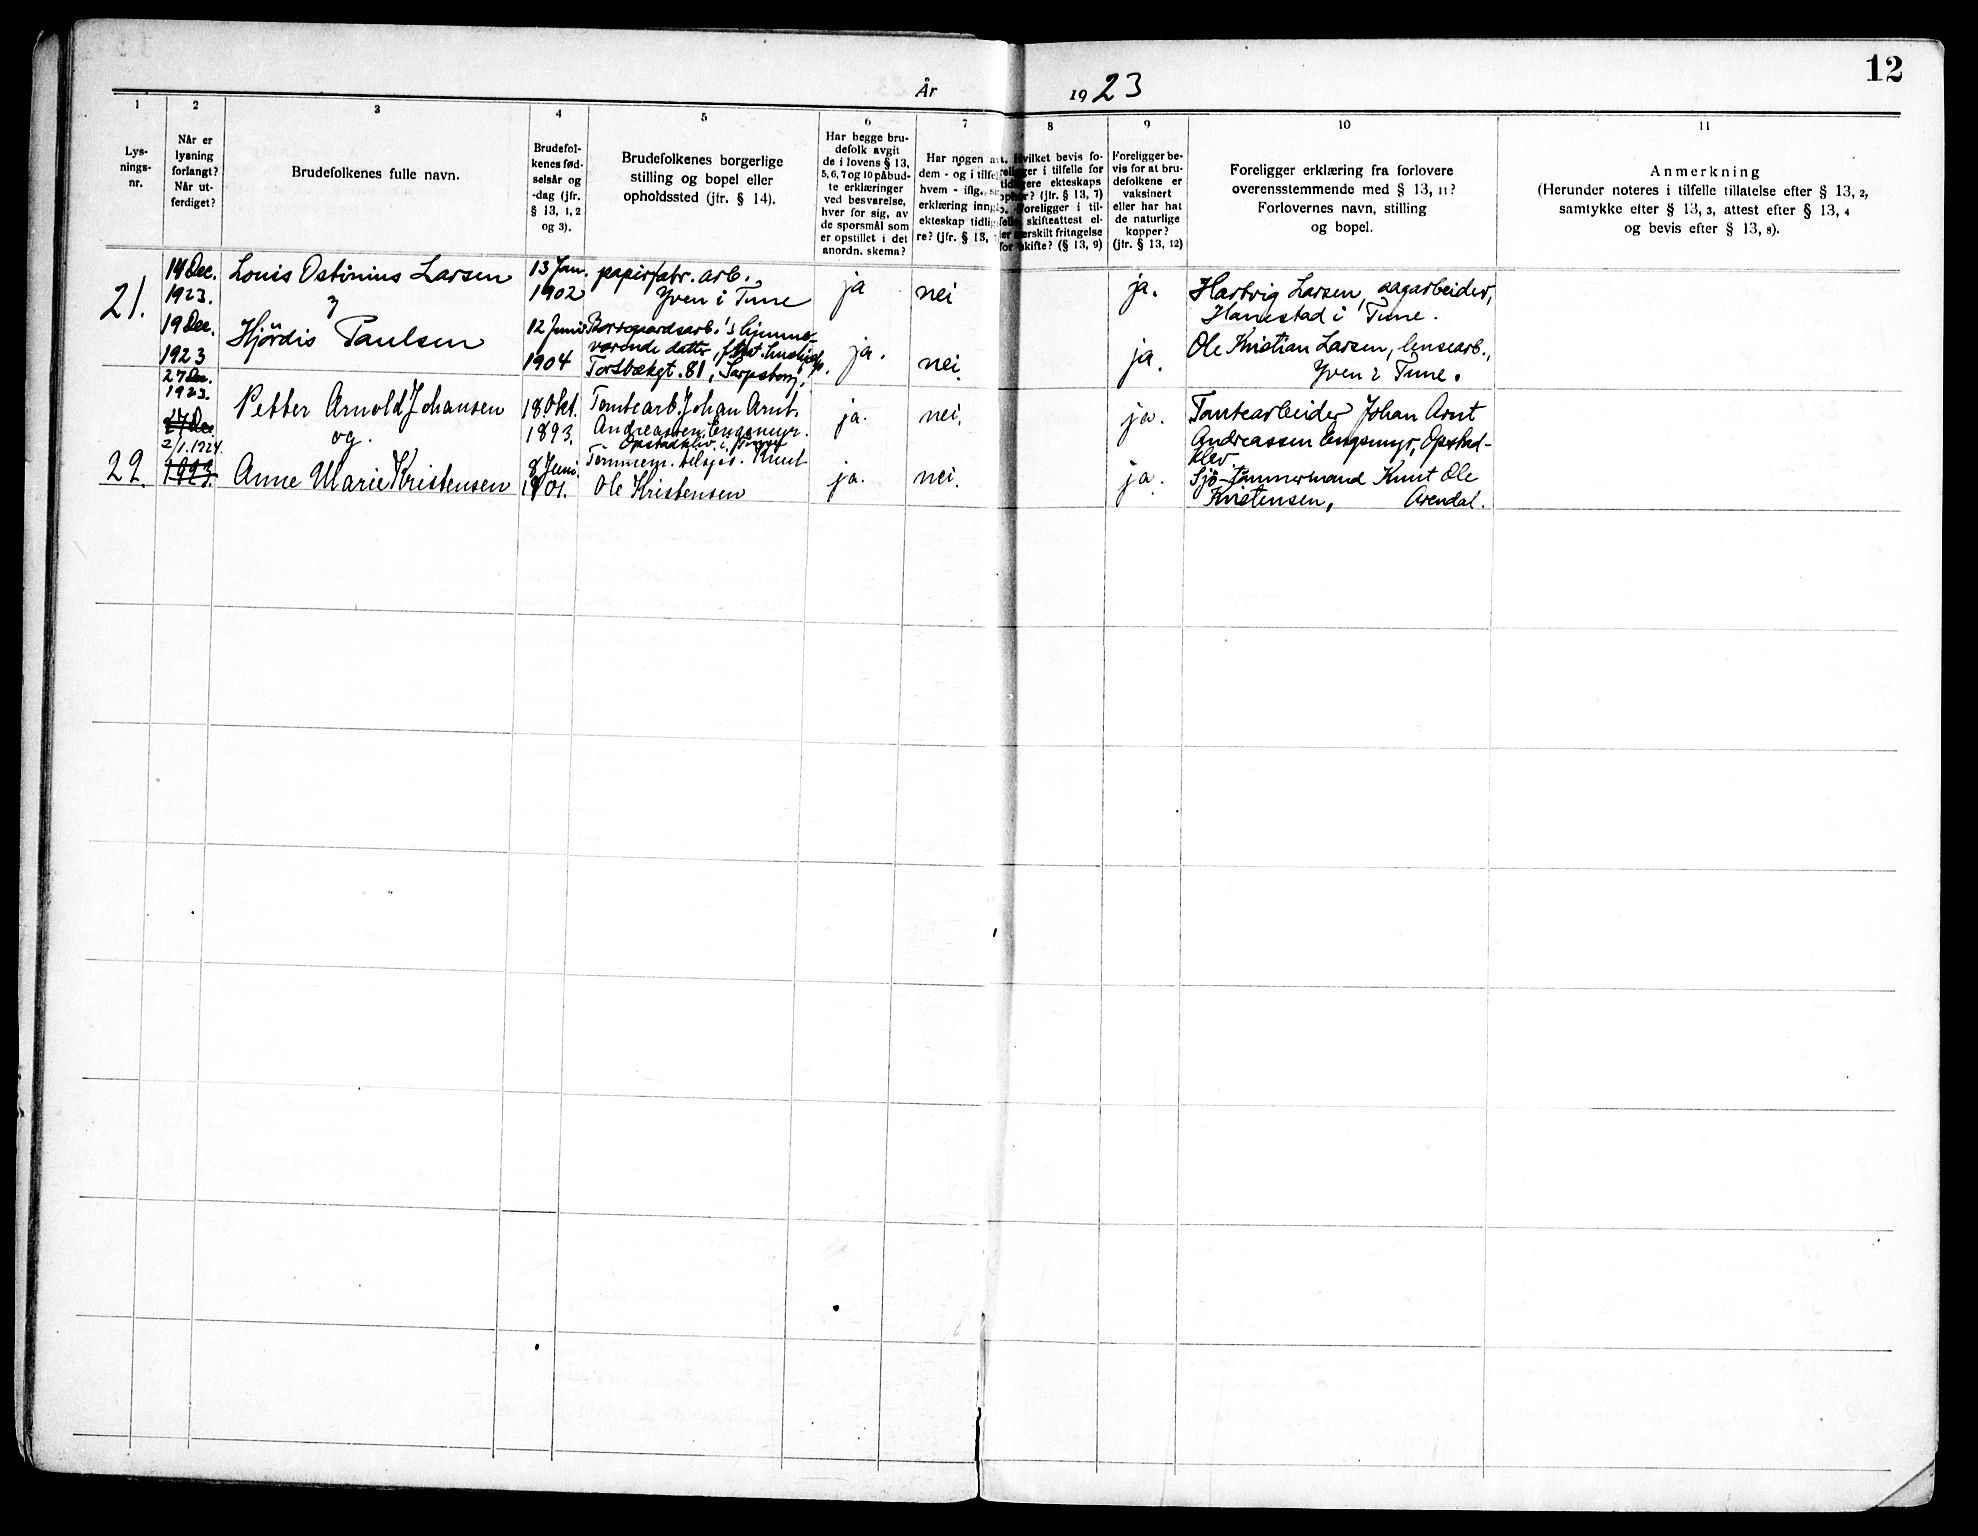 12
År 1923
1
Lys-
nings-
nr.
2
Når er
lysning
forlangt?
Når ut-
ferdiget?
3
Brudefolkenes fulle navn.
4
Brudefol-
kenes fød-
selsår og
-dag (jfr.
§ 13, 1, 2
og 3).
5
Brudefolkenes borgerlige
stilling og bopel eller
opholdssted (jfr. § 14).
6
Har begge bru-
defolk avgit
de i lovens § 13,
5, 6, 7 og 10 påbud-
te erklæringer
ved besvarelse,
hver for sig, av
de spørsmål som
er opstillet i det
anordn. skema?
7
Har nogen av
dem - og i tilfel
hvem - iflg.
erklæring inng
ekteskap tidlig
re? (jfr. § 13,
8
Hvilket bevis fo-
religger i tilfelle for
tidligere ekteskaps
ophør? (jfr. § 13, 7)
Foreligger i til-
felle skifteattest el-
ler særskilt fritagelse
for skifte? (§ 13, 9)
9
Foreligger be-
vis for at bru-
defolkene er
vaksinert
eller har hat
de naturlige
kopper?
(jfr. § 13, 12)
10
Foreligger erklæring fra forlovere
overensstemmende med § 13, 11?
Forlovernes navn, stilling
og bopel.
11
Anmerkning
(Herunder noteres i tilfelle tillatelse efter § 13, 2,
samtykke efter § 13, 3, attest efter § 13, 4
og bevis efter § 13, 8).
21.
14 Dec.
1923.
19 Dec.
1923
Louis Ostinius Larsen
Hjördis Paulsen
13 Jan.
1902
12 Juni
1904
papirfabr. arb.
Yven i Tune
Borregaardsarb.'s hjemme-
værende datter,
Torsbækgt. 81, Sarpsborg,
ja
ja.
nei
nei.
ja.
ja.
Hartvig Larsen, sagarbeider,
Hanestad i Tune.
Ole Kristian Larsen, lensearb.,
Yven i Tune.
22.
27 Dec.
1923.
27 Dec
2/1.1924.
1923.
Petter Arnold Johansen
og.
Anne Marie Kristensen
18. Okt.
1893.
8 Juni.
1901.
Tomtearb. Johan Arnt
Andreassen. Engsmyr.
Opstadklev i Tune
Tømmerm. Knut
Ole Kristensen
ja.
ja.
nei.
nei.
ja.
ja.
Tomtearbeider Johan Arnt
Andreassen Engsmyr, Opstad-
klev
Sjö-tømmermand Knut Ole
Kristensen, Arendal.